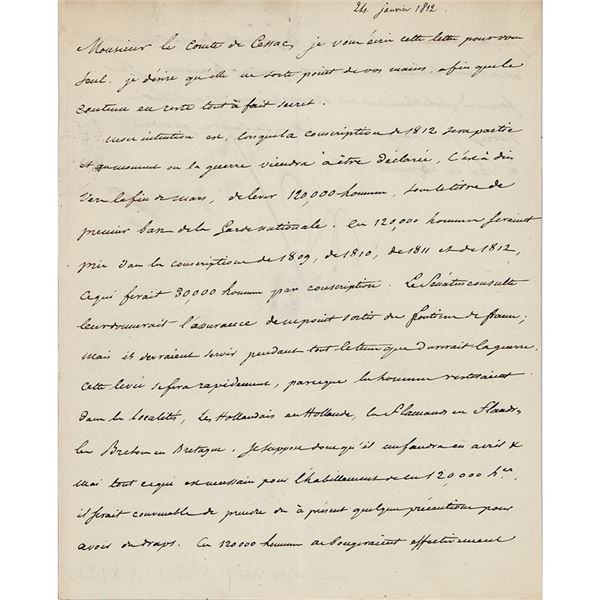 24. janvier 1812
Monsieur le Comte de Cessac, je vous écris cette lettre pour vous
seul. je désire qu'elle ne sorte point de vos mains, afin que le
contenu en reste tout à fait secret.
mon intention est, lorsque la conscription de 1812 sera partie
et au moment où la guerre viendra à être déclarée, C'est à dire
vers la fin de mars, de lever 120,000 hommes, sous le titre de
premier ban de la Garde nationale. Ces 120,000 hommes seraient
pris dans les conscriptions de 1809, de 1810, de 1811 et de 1812,
ce qui ferait 30,000 hommes par conscription. Le Sénatus consulte
leur donnerait l'assurance de ne point sortir des frontières de france;
mais ils devraient servir pendant tout le tems que durerait la guerre.
Cette levée se fera rapidement, parceque les hommes resteraient
dans les localités, les Hollandais en Hollande, les Flamands en Flandre,
les Bretons en Bretagne. Je suppose donc qu'il en faudra en avril &
mai tout ce qui est nécessaire pour l'habillement de ces 120000 hes.
il serait convenable de prendre dès à présent quelques précautions pour
avoir des draps. Ces 120000 hommes ne bougeraient effectivement